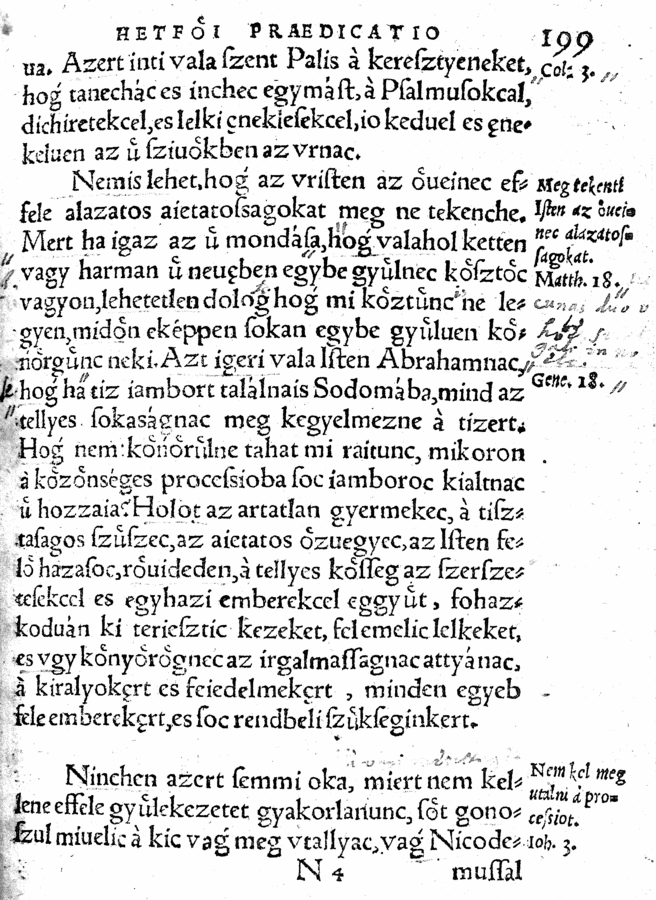 HETFŐI PRAEDICATIO 199
ua. Azert inti vala ſzent Palis à kereſztyeneket,
hoǵ tanechác es inchec egymáſt, à Pſalmuſokcal,
dichiretekcel, es lelki ęnekieſekcel, io keduel es ęne-
keluen az uͤ ſziuoͤkben az vrnac.
Nemis lehet, hoǵ az vriſten az oͤueinec ef-
fele alazatos aietatoſsagokat meg ne tekenche.
Mert ha igaz az uͤ mondáſa, hoǵ valahol ketten
vagy harman uͤ neuęben egybe gyuͤlnec koͤſztoͤc
vagyon, lehetetlen doloǵ hoǵ mi koͤztuͤnc ne le-
gyen, midoͤn eképpen ſokan egybe gyuͤluen koͤ-
ńoͤrgunc neki. Azt igeri vala Iſten Abrahamnac,
hoǵ ha tiz iambort talàlnais Sodomába, mind az
tellyes ſokaságnac meg kegyelmezne à tizert.
Hoǵ nem koͤńoͤruͤlne tahat mi raitunc, mikoron
à koͤzoͤnséges proceſsioba ſoc iamboroc kialtnac
uͤ hozzaia? Holot az artatlan gyermekec, à tiſz-
taſagos ſzuͤſzec, az aietatos oͤzuegyec, az Iſten fe-
loͤ hazaſoc, roͤuideden, à tellyes koͤſſeg az ſzerſze-
teſekcel es egyhazi emberekcel eggyuͤt, fohaz-
koduán ki terieſztic kezeket, fel emelic lelkeket,
es vgy koͤnyoͤroͤgnec az irgalmaſſagnac attyánac,
à kiralyokęrt es feiedelmekęrt, minden egyeb
fele emberekęrt, es ſoc rendbeli ſzuͤkſeginkert.
Ninchen azert ſemmi oka, miert nem kel-
lene effele gyuͤlekezetet gyakorlanunc, ſoͤt gono-
ſzul miuelic à kic vaǵ meg vtallyac, vaǵ Nicode-
N 4 muſſal
Col: 3.
Meg tekenti
Iſten az oͤuei-
nec alazatoſ-
ſagokat.
Matth. 18.
Gene. 18.
Nem kel meg
utalni à pro-
ceſsiot.
Ioh. 3.